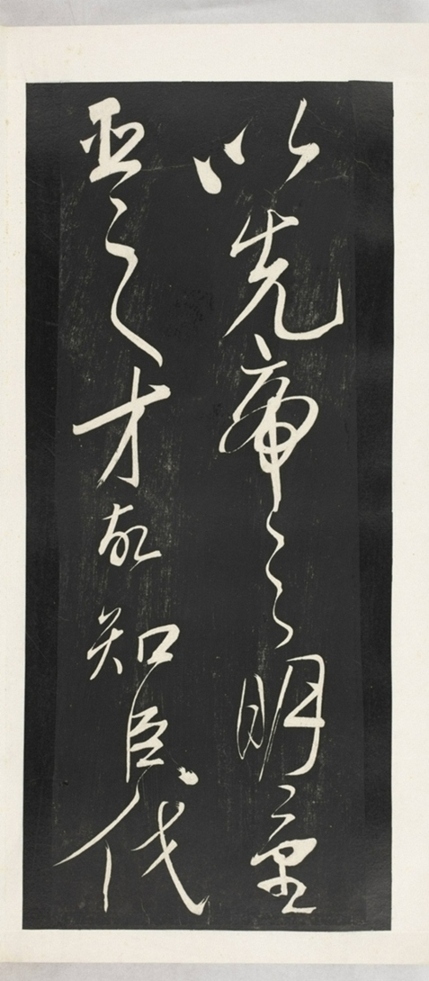 以先帝之明量
臣之才故知臣伐